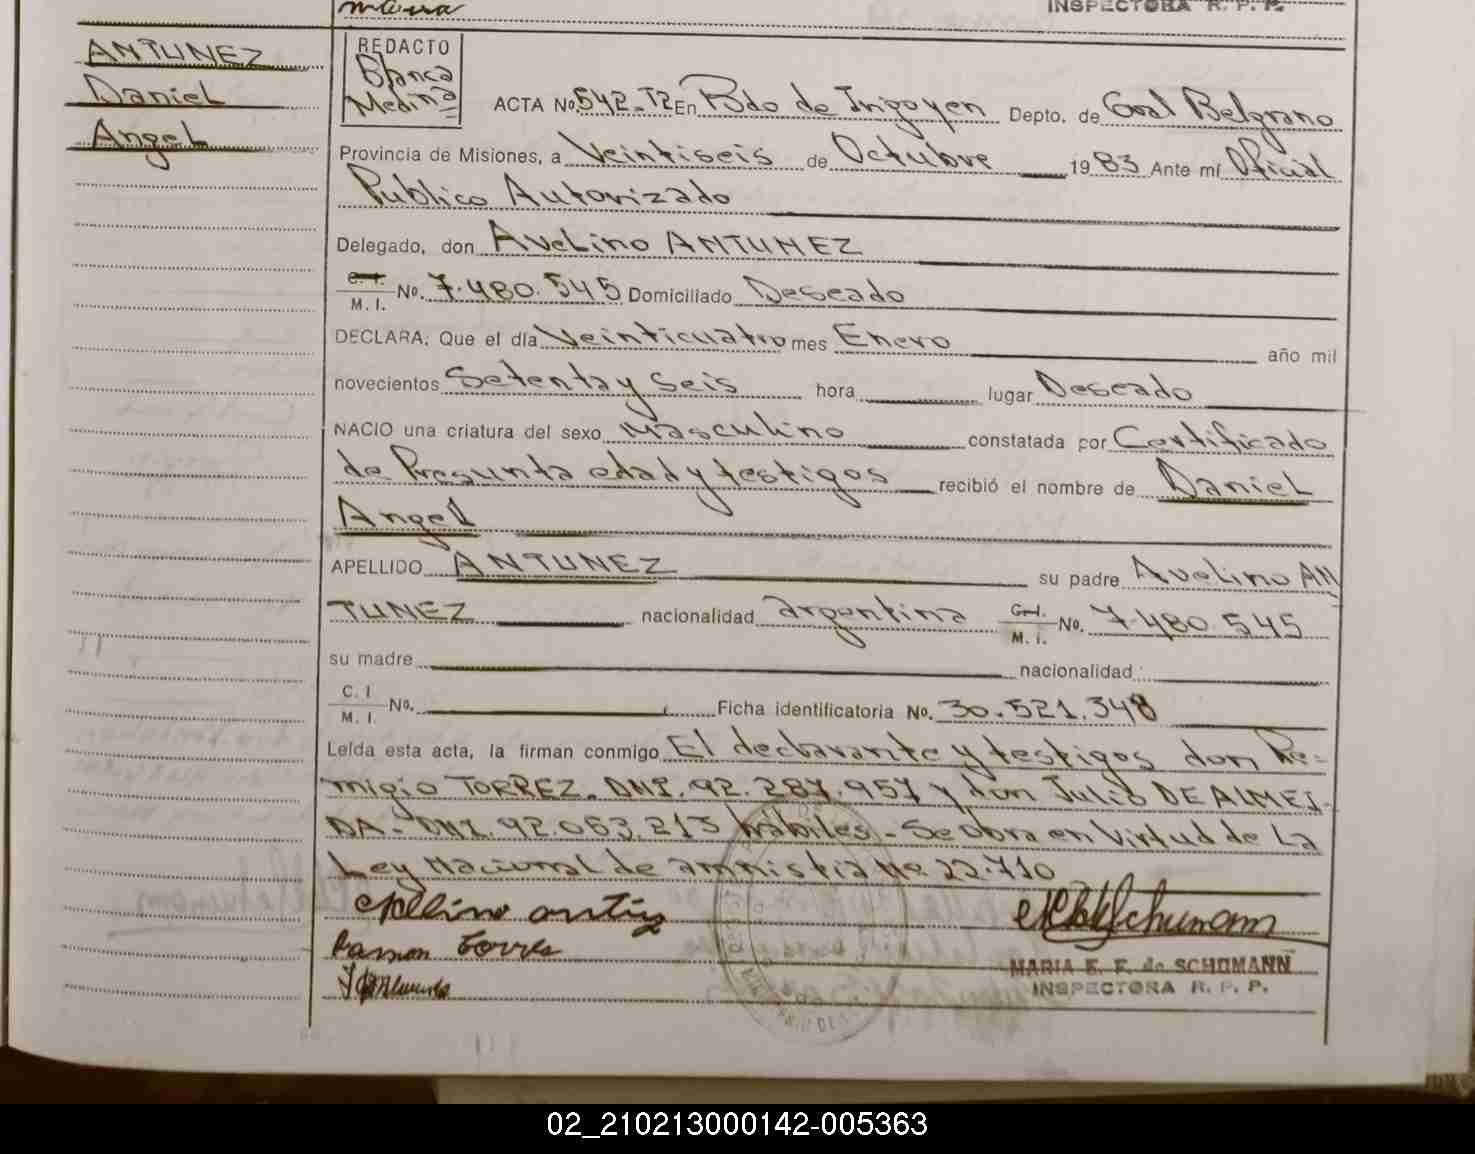 INSPECTORA R. P. P.
ANTUNEZ
Daniel
Angel
REDACTO
Blanca
Medina
ACTA No. 542-T2 En Bdo de Irigoyen Depto. de Gral Belgrano
Provincia de Misiones, a Veintiseis de Octubre 1983 Ante mí Oficial
Publico Autorizado
Delegado, don Avelino ANTUNEZ
C. I.
M. I. No. 7.480.545 Domiciliado Deseado
DECLARA: Que el día Veinticuatro mes Enero año mil
novecientos Setenta y Seis hora lugar Deseado
NACIO una criatura del sexo Masculino constatada por Certificado
de Presunta edad y testigos recibió el nombre de Daniel
Angel
APELLIDO ANTUNEZ su padre Avelino AN
TUNEZ nacionalidad argentina C. I. M. I. No. 7.480.545
su madre nacionalidad
C. I
M. I. No. Ficha identificatoria No. 30.521.348
Leída esta acta, la firman conmigo El declarante y testigos don Re=
migio TORREZ. DNI. 92.287.957 y don Julio DE ALMEI-
DA- DNI. 92.063.213 habiles- Se obra en Virtud de La
Ley Nacional de amnistia No 22.710
Ramon Torres
MARIA E. F. de SCHUMANN
INSPECTORA R. P. P.
02_210213000142-005363